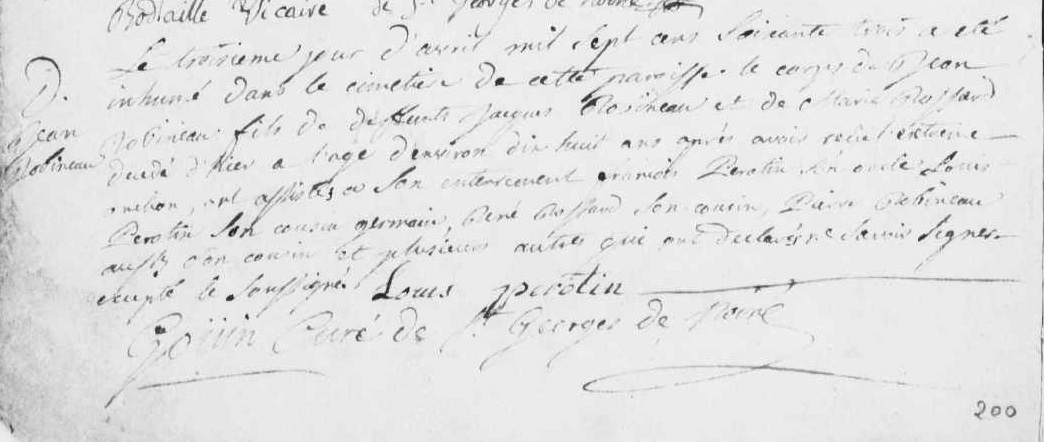 Vicaire de St Georges de Noiré
Le troisieme jour d'avril mil sept cens soixante trois a eté
D. inhumé dans le cimetiere de cette paroisse le corps de Jean
Jean Robineau fils de deffunts Jacques Robineau et de Marie Rossard
Robineau decedé d'hier a l'age d'environ dix huit ans après avoir recu l'extreme
onction, ont assistes a son enterrement françois Perotin son oncle Louis
Perotin son cousin germain, René Rossard son cousin, Pierre Robineau
aussi son cousin et plusieurs autres qui ont declarés ne savoir signer
excepté le soussigné Louis perotin
Curé de St Georges de Noiré
200